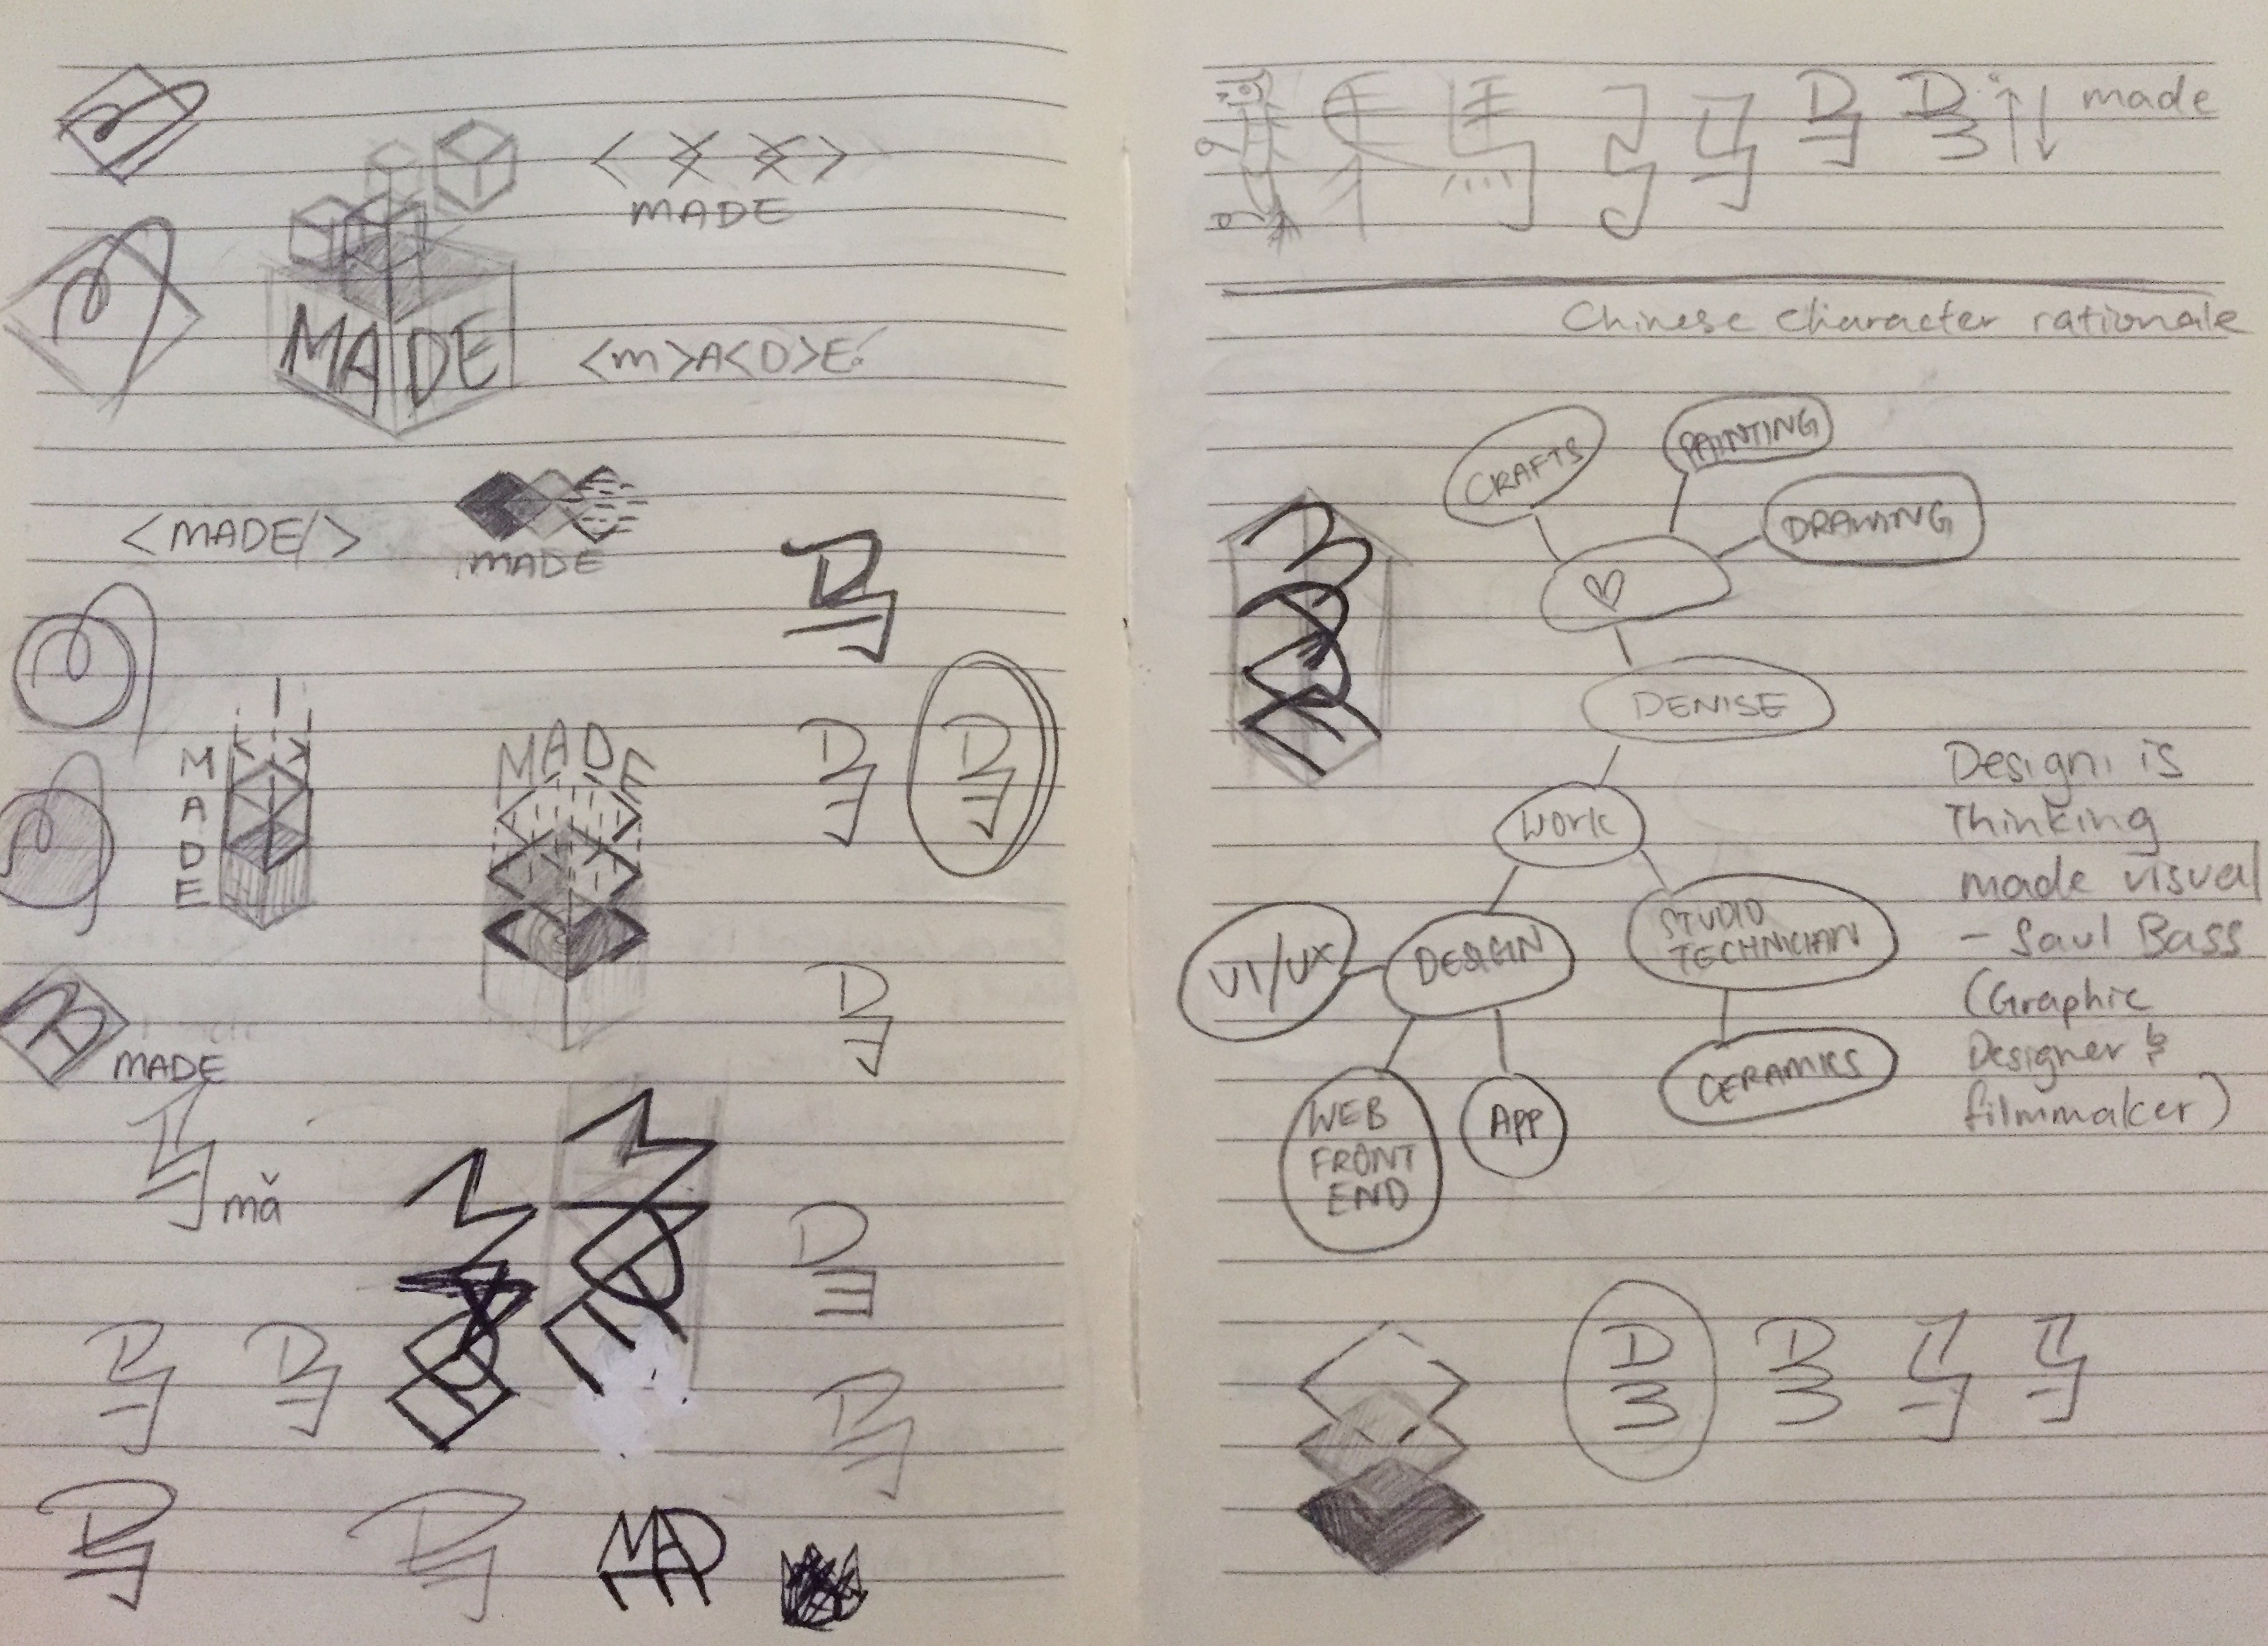 MADE
MADE
<m>A<D>E
<MADE/>
MADE
M
A
D
E
MADE
MADE
mǎ
MAD
馬
made
Chinese character rationale
CRAFTS
PAINTING
DRAWING
DENISE
WORK
UI/UX
DESIGN
STUDIO
TECHNICIAN
WEB
FRONT
END
APP
CERAMICS
Design is
Thinking
made visual
- Saul Bass
(Graphic
Designer &
filmmaker)
D
3